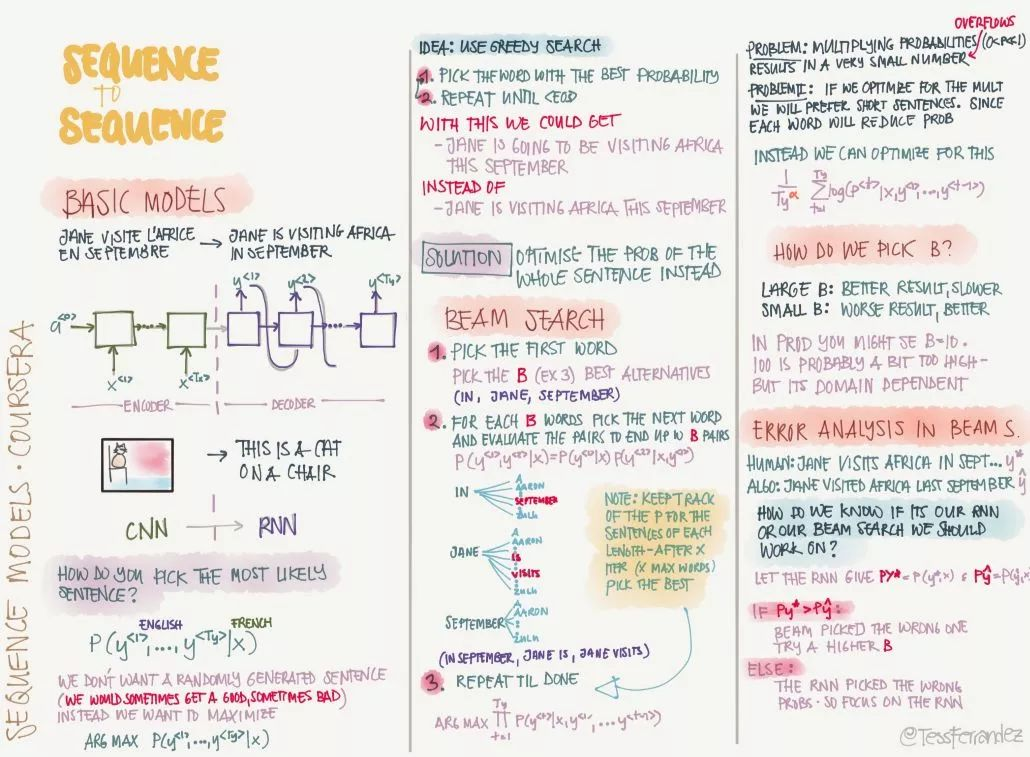 SEQUENCE
TO
SEQUENCE
SEQUENCE MODELS · COURSERA
BASIC MODELS
JANE VISITE L'AFRICE
EN SEPTEMBRE
→ JANE IS VISITING AFRICA
IN SEPTEMBER
y<1> y<2> y<Ty>
a<0>
x<1> x<Tx>
ENCODER DECODER
→ THIS IS A CAT
ON A CHAIR
CNN → RNN
HOW DO YOU PICK THE MOST LIKELY
SENTENCE?
ENGLISH FRENCH
P(y<1>,...,y<Ty>|x)
WE DON'T WANT A RANDOMLY GENERATED SENTENCE
(WE WOULD SOMETIMES GET A GOOD, SOMETIMES BAD)
INSTEAD WE WANT TO MAXIMIZE
ARG MAX P(y<1>,...,y<Ty>|x)
IDEA: USE GREEDY SEARCH
1. PICK THE WORD WITH THE BEST PROBABILITY
2. REPEAT UNTIL <EOS>
WITH THIS WE COULD GET
- JANE IS GOING TO BE VISITING AFRICA
THIS SEPTEMBER
INSTEAD OF
- JANE IS VISITING AFRICA THIS SEPTEMBER
SOLUTION OPTIMISE THE PROB OF THE
WHOLE SENTENCE INSTEAD
BEAM SEARCH
1. PICK THE FIRST WORD
PICK THE B (EX 3) BEST ALTERNATIVES
(IN, JANE, SEPTEMBER)
2. FOR EACH B WORDS PICK THE NEXT WORD
AND EVALUATE THE PAIRS TO END UP W B PAIRS
P(y<1>,y<2>|x)=P(y<1>|x) P(y<2>|x,y<1>)
IN
A
AARON
SEPTEMBER
ZULU
JANE
A
AARON
IS
VISITS
ZULU
SEPTEMBER
A
AARON
ZULU
NOTE: KEEP TRACK
OF THE P FOR THE
SENTENCES OF EACH
LENGTH - AFTER X
ITER (X MAX WORDS)
PICK THE BEST
(IN SEPTEMBER, JANE IS, JANE VISITS)
3. REPEAT TIL DONE
Ty
ARG MAX ∏ P(y<t>|x,y<1>,...,y<t-1>)
t=1
OVERFLOWS
PROBLEM: MULTIPLYING PROBABILITIES (0<P≪1)
RESULTS IN A VERY SMALL NUMBER
PROBLEM II: IF WE OPTIMIZE FOR THE MULT
WE WILL PREFER SHORT SENTENCES. SINCE
EACH WORD WILL REDUCE PROB
INSTEAD WE CAN OPTIMIZE FOR THIS
1/Ty^α Ty∑t=1 log(P<t>|x,y<1>,...,y<t-1>)
HOW DO WE PICK B?
LARGE B: BETTER RESULT, SLOWER
SMALL B: WORSE RESULT, BETTER
IN PROD YOU MIGHT SE B=10.
100 IS PROBABLY A BIT TOO HIGH -
BUT ITS DOMAIN DEPENDENT
ERROR ANALYSIS IN BEAM S.
HUMAN: JANE VISITS AFRICA IN SEPT... y*
ALGO: JANE VISITED AFRICA LAST SEPTEMBER ŷ
HOW DO WE KNOW IF ITS OUR RNN
OR OUR BEAM SEARCH WE SHOULD
WORK ON?
LET THE RNN GIVE Py*=P(y*,x) & Pŷ=P(ŷ,x)
IF Py*>Pŷ:
BEAM PICKED THE WRONG ONE
TRY A HIGHER B
ELSE:
THE RNN PICKED THE WRONG
PROBS - SO FOCUS ON THE RNN
@TessFerrandez